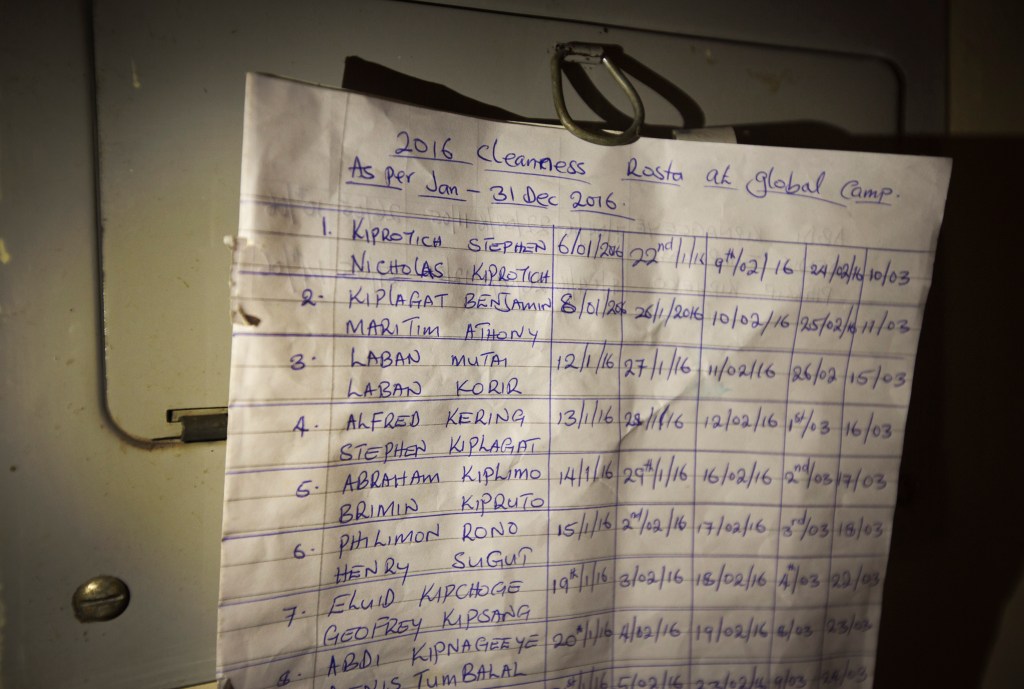 2016 Cleanness Rosta at global Camp.
As per Jan - 31 Dec 2016.
1. KIPROTICH STEPHEN 6/01/2016 22nd/1/16 9th/02/16 24/02/16 10/03
NICHOLAS KIPROTICH
2. KIPLAGAT BENJAMIN 8/01/2016 26/1/2016 10/02/16 25/02/16 11/03
MARITIM ATHONY
3. LABAN MUTAI 12/1/16 27/1/16 11/02/16 26/02 15/03
LABAN KORIR
4. ALFRED KERING 13/1/16 28/1/16 12/02/16 1st/03 16/03
STEPHEN KIPLAGAT
5. ABRAHAM KIPLIMO 14/1/16 29th/1/16 16/02/16 2nd/03 17/03
BRIMIN KIPRUTO
6. PHILIMON RONO 15/1/16 2nd/02/16 17/02/16 3rd/03 18/03
HENRY SUGUT
7. ELUID KIPCHOGE 19th/1/16 3/02/16 18/02/16 4th/03 22/03
GEOFREY KIPSANG
8. ABDI KIPNAGEEYE 20th/1/16 4/02/16 19/02/16 8/03 23/03
TUMBALAL 5/02/16 9/03